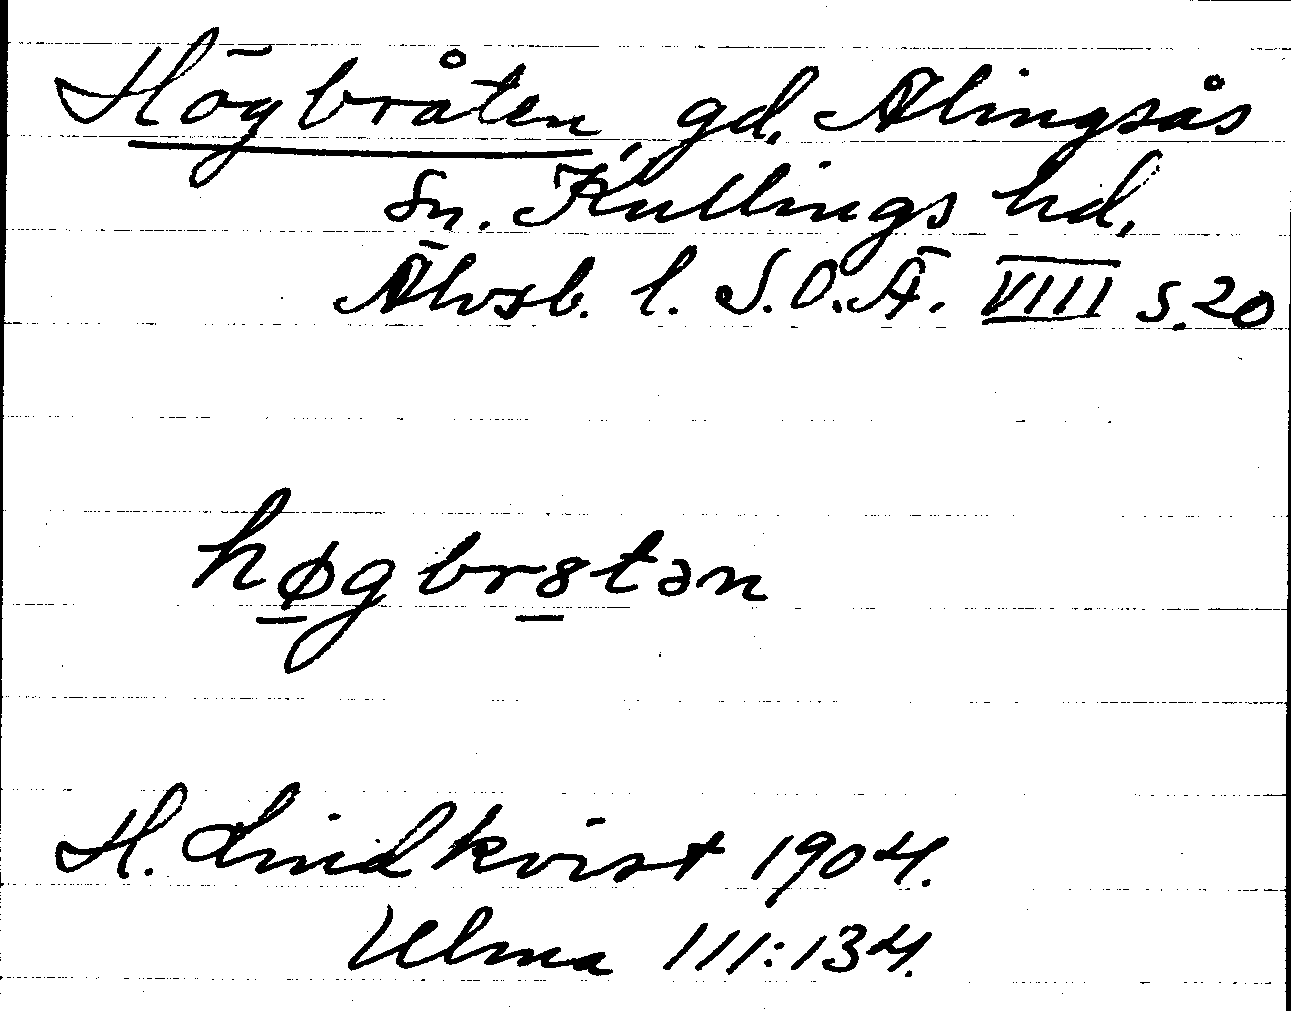 Högbråten, gd. Alingsås
sn. Kullings hd,
Älvsb. l. S.O.Ä. VIII s.20
høgbr8tən
H. Lindkvist 1904.
Ulma 111:134.